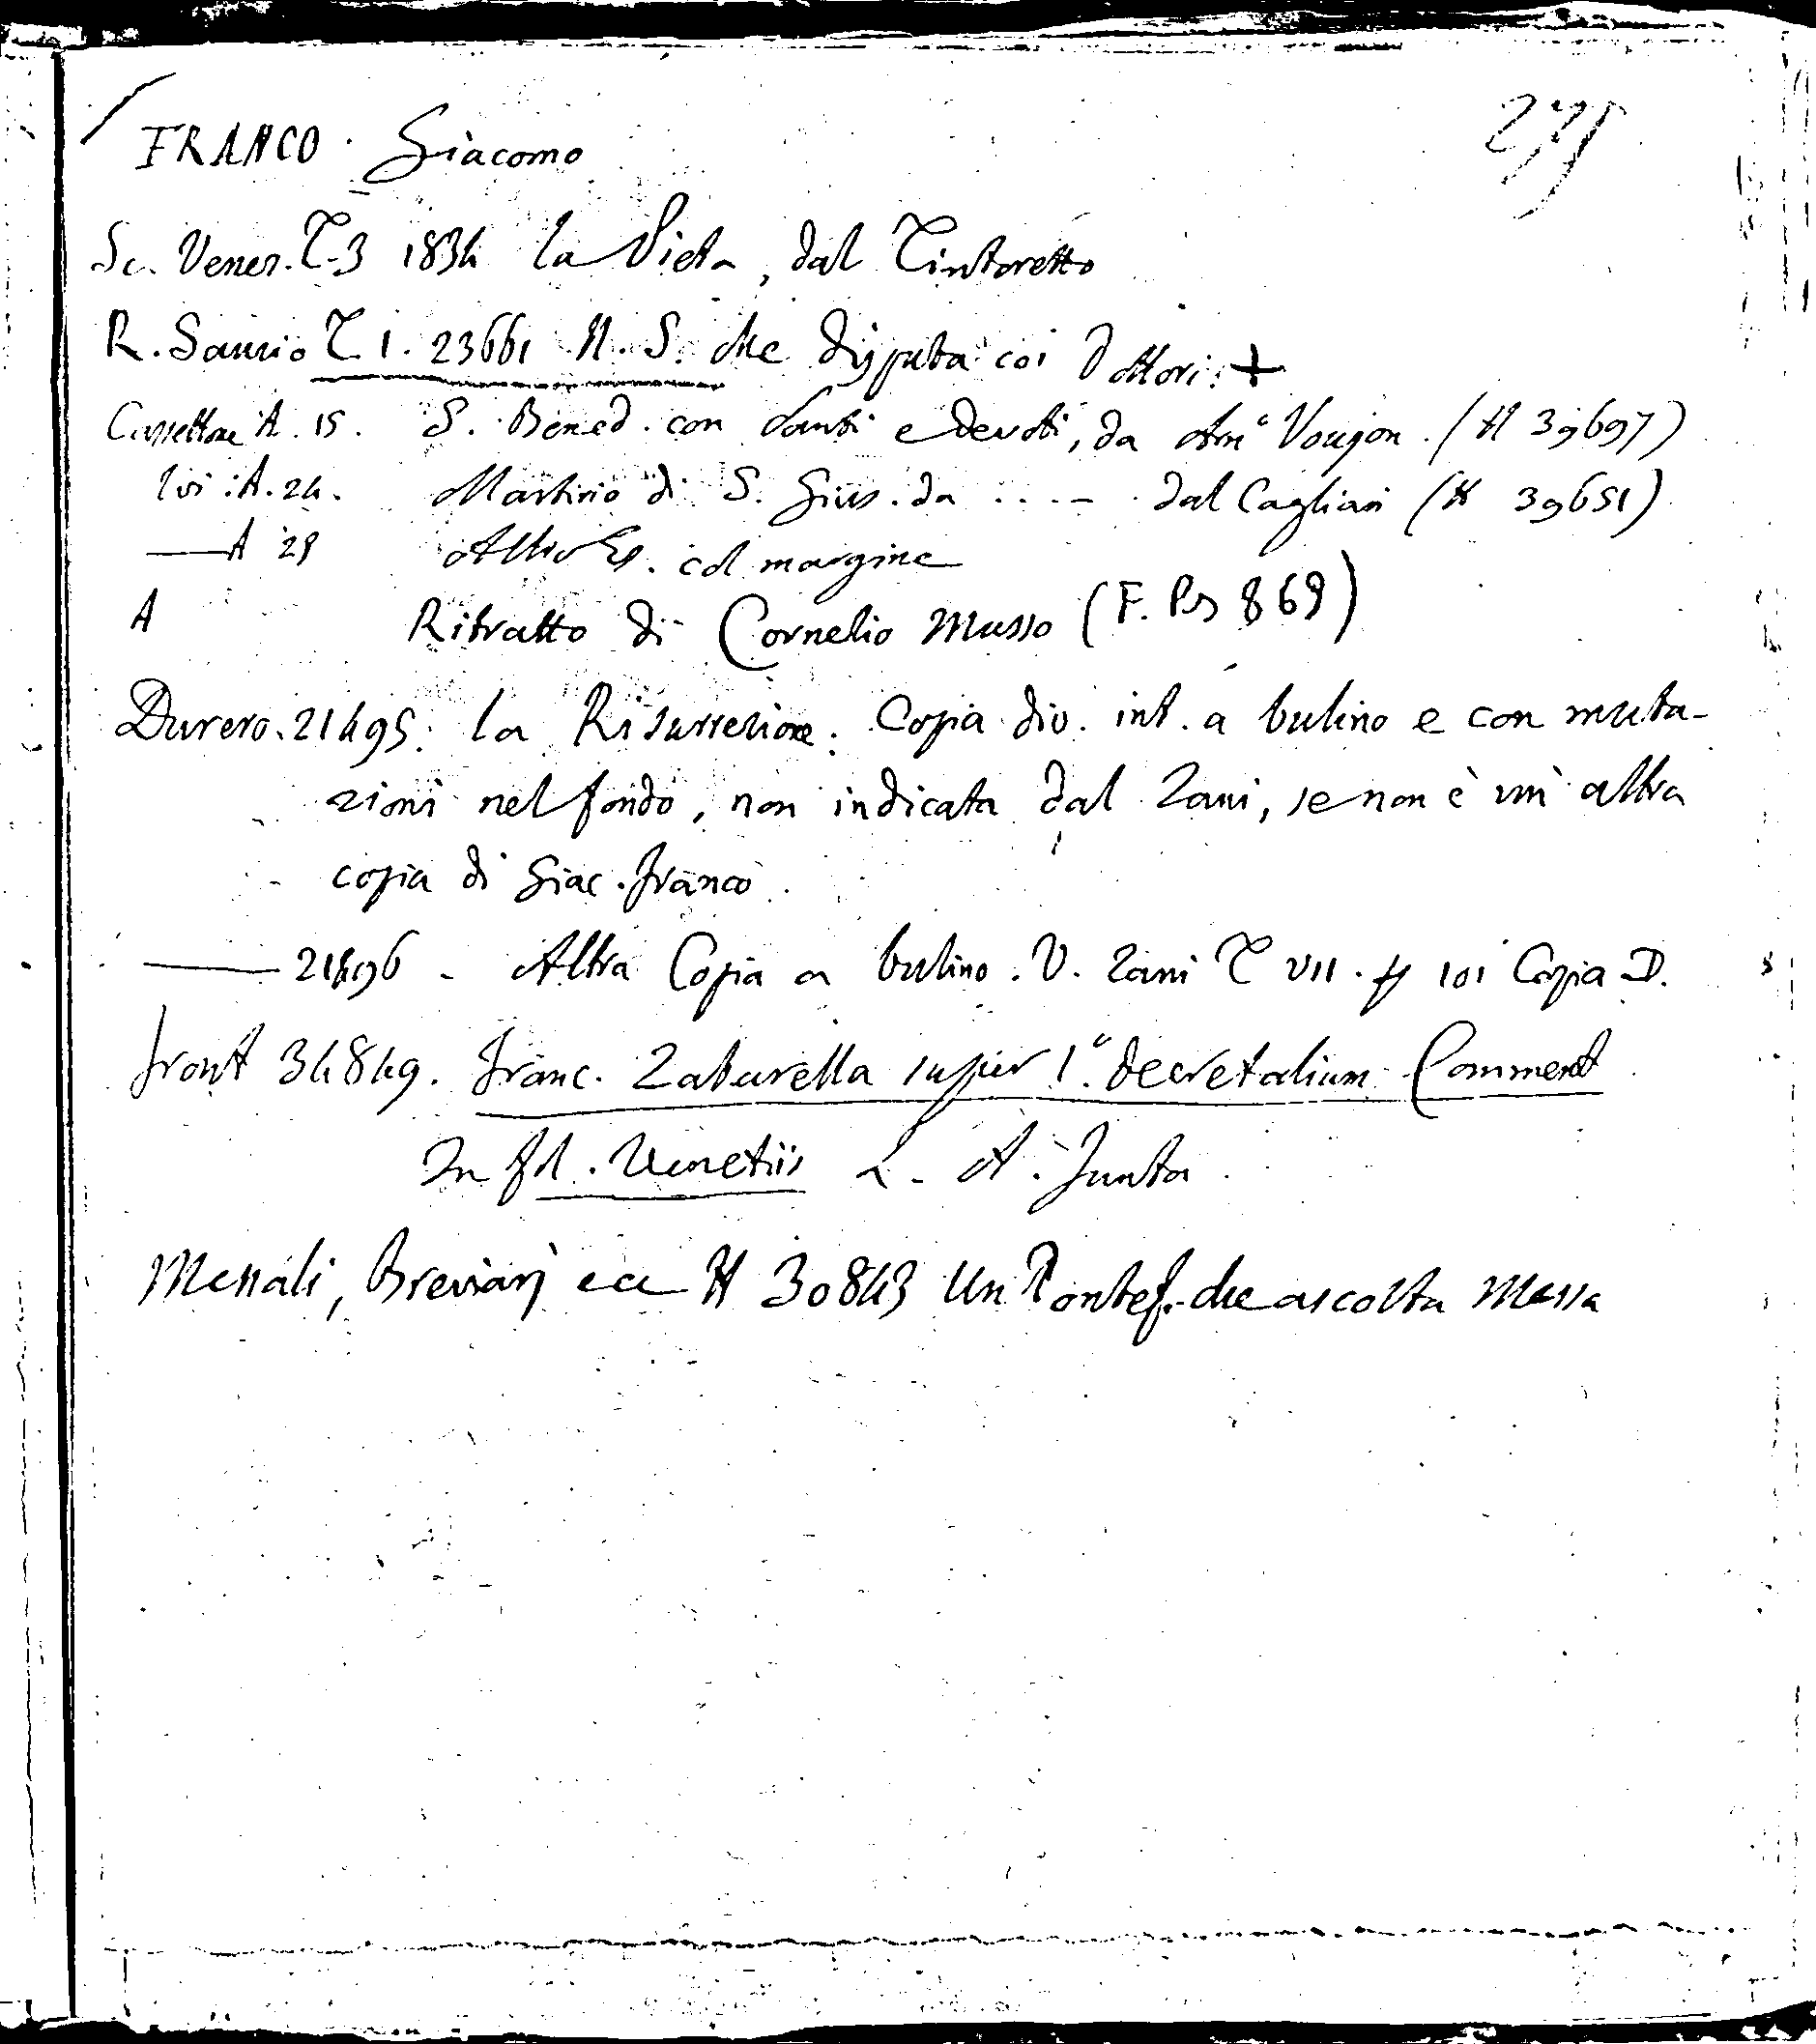 FRANCO Giacomo
Sc. Venez. T. 3 1834 la Pietà, dal Tintoretto
R. Sanzio T. 1. 23661 N. S. che disputa coi Dottori. +
Cassettone A. 15. S. Bened. con Santi e devoti, da (N 39697)
Ivi. A. 24. Martirio di S. Gius. da .... dal Cagliari (N 39651)
—— A 25 Altro Es. col margine
A Ritratto di Cornelio Musso (F. Ps 869)
Durero. 21495. la Risurrezione. Copia div. int. a bulino e con muta-
zioni nel fondo, non indicata dal Zani, se non è un' altra
copia di Giac. Franco.
—— 21496 - Altra Copia a bulino. V. Zani T VII. p 101 Copia D.
front 34849. Franc. Zabarella super 1.° decretalium Comment
In fol. Venetiis L. A. Junta
Messali, Breviarj ec N 30843 Un Pontef. che ascolta Messa